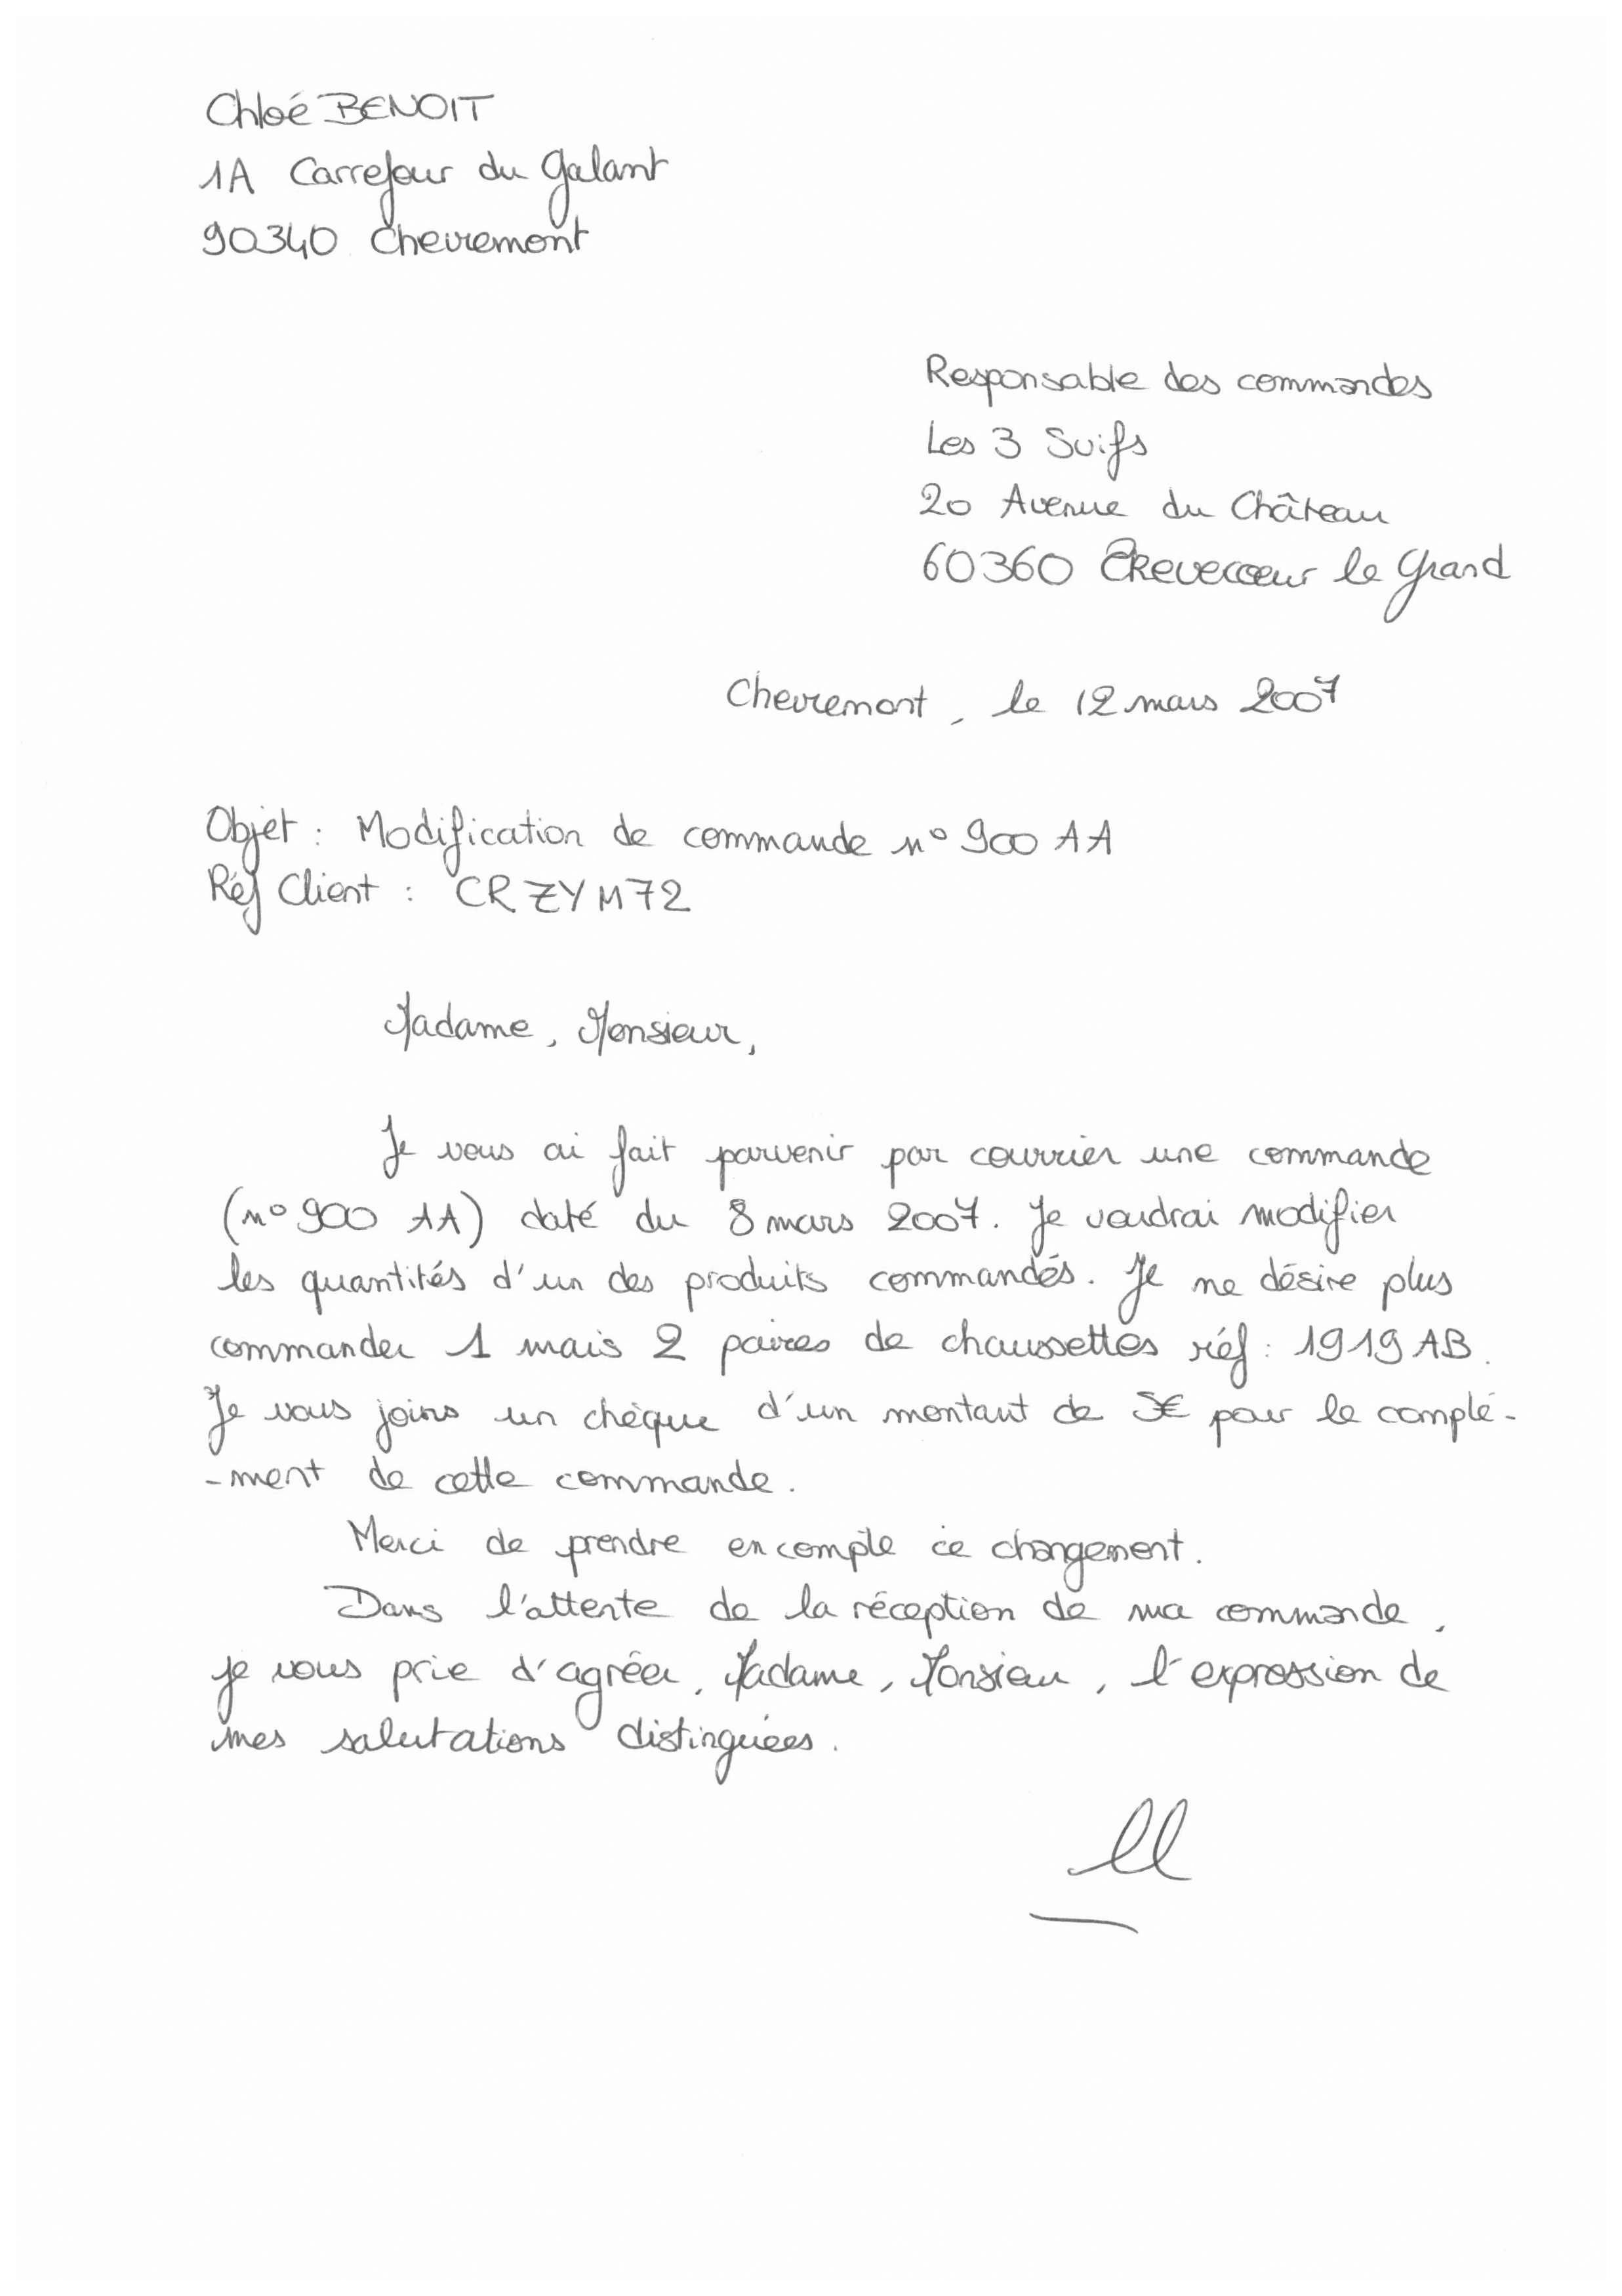 Chloé BENOIT
1A Carrefour du Galant
90340 Chevremont
Responsable des commandes
Les 3 Suifs
20 Avenue du Château
60360 CReveccœur le Grand
Chevremont, le 12 mars 2007
Objet : Modification de commande n° 900 AA
Réf Client : CRZYM72
Madame, Monsieur,
Je vous ai fait parvenir par courrier une commande
(n° 900 AA) daté du 8 mars 2007. Je voudrai modifier
les quantités d'un des produits commandés. Je ne désire plus
commander 1 mais 2 paires de chaussettes réf : 1919 AB.
Je vous joins un chèque d'un montant de 5€ pour le complé-
-ment de cette commande.
Merci de prendre en compte ce changement.
Dans l'attente de la réception de ma commande,
je vous prie d'agréer, Madame, Monsieur, l'expression de
mes salutations distinguées.